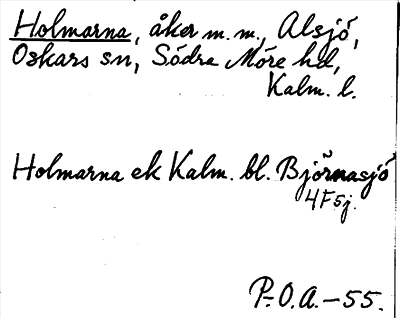 Holmarna, åker m.m., Alsjö,
Oskars sn, Södra Möre hd,
Kalm. l.
Holmarna ek Kalm. bl. Björnasjö
4F5j.
P.O.A.-55.